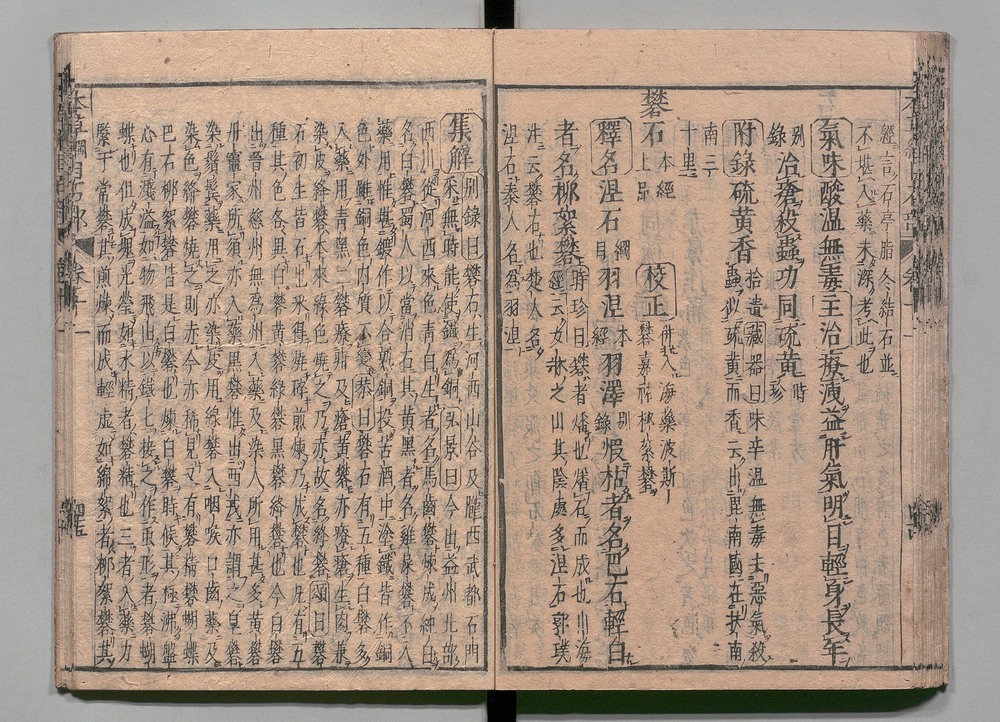 經言石亭脂冬結石並
不堪入藥未深考此也
氣味酸溫無毒主治療瘧益肝氣明目輕身長年
別錄治瘡殺蟲功同硫黃時珍
附錄硫黃香拾遺藏器曰味辛溫無毒去惡氣殺
蟲似硫黃而香云出毘南國在扶南
南三十里
礬石本經上品校正併入海藥波斯
礬嘉祐柳絮礬
釋名涅石綱目羽涅本經羽澤別錄煆枯者名巴石輕白
者名柳絮礬時珍曰礬者燔也燔石而成也山海
經云女牀之山其陰處多涅石郭璞
注云礬石也楚人名
涅石秦人名爲羽涅
集解別錄曰礬石生河西山谷及隴西武都石門
采無時能使鐵爲銅弘景曰今出益州北部
西川從河西來色青白生者名馬齒礬煉成純白
名白礬蜀人以當消石其黃黑者名雞屎礬不入
藥用惟堪鍍作以合熟銅投苦酒中塗鐵皆作銅
色外雖銅色內質不變恭曰礬石有五種白礬多
入藥用青黑二礬療疳及瘡黃礬亦療瘡生肉兼
染皮絳礬本來綠色燒之乃赤故名絳礬頌曰礬
石初生皆石也采得燒碎煎煉乃成礬也凡有五
種其色各異白礬黃礬綠礬黑礬絳礬也今白礬
出晉州慈州無爲州入藥及染人所用甚多黃礬
丹竈家所須亦入藥黑礬惟出西戎亦謂之皁礬
染鬚鬢藥用之亦染皮用綠礬入咽喉口齒藥及
染色絳礬燒之則赤今亦稀見又有礬精礬蝴蝶
巴石柳絮礬皆是白礬也煉白礬時候其極沸盤
心有濺溢如物飛出以鐵匕接之作蟲形者礬蝴
蝶也但成塊光瑩如水精者礬精也二者入藥力
緊于常礬其煎煉而成輕虛如綿絮者柳絮礬其